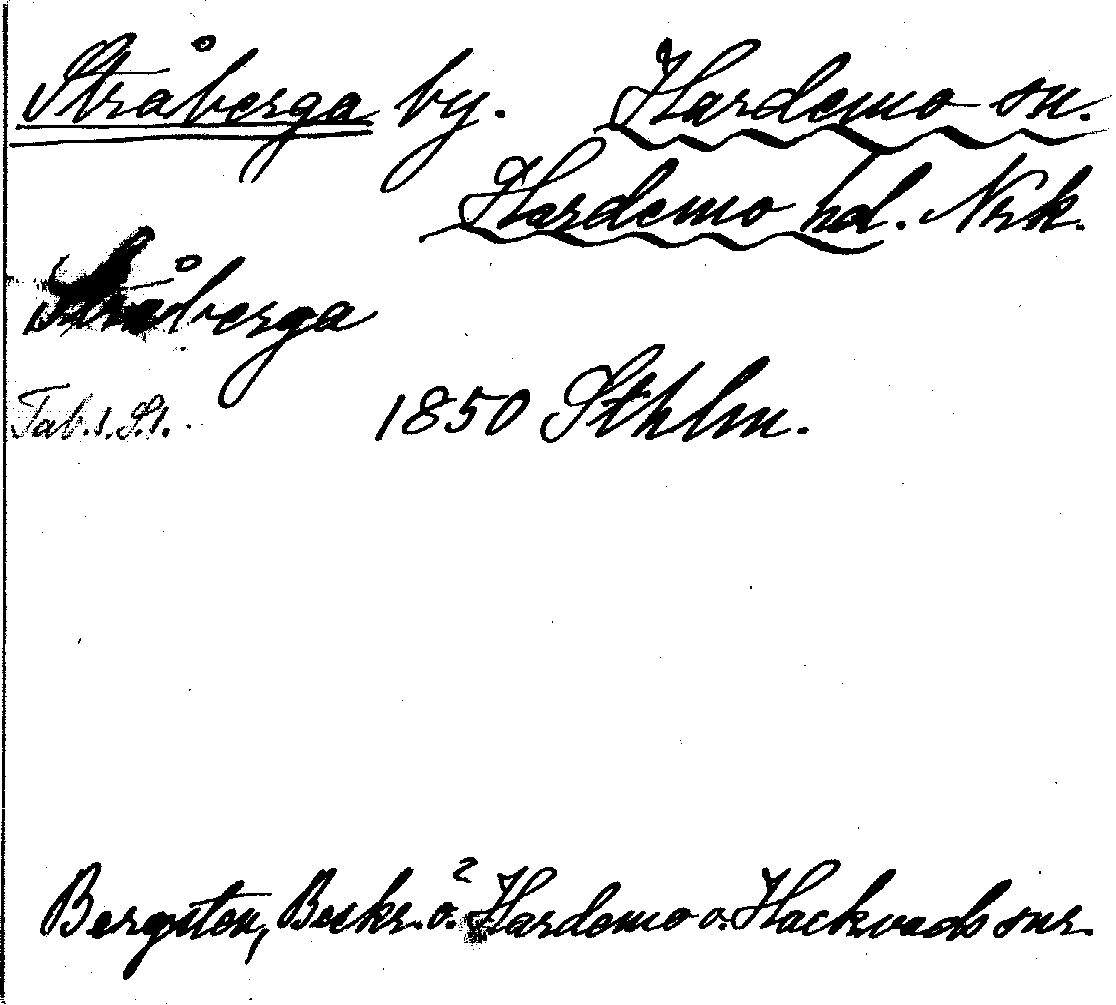 Stråberga by. Hardemo sn.
Hardemo hd. Nrk.
Stråberga
Tab. 1. S. 1. 1850 Sthlm.
Bergsten, Beskr. ö. Hardemo o. Hackvads snr.